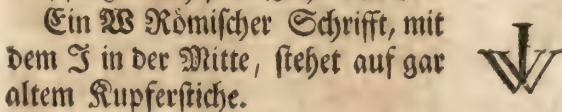 Ein W Römischer Schrifft, mit
dem J in der Mitte, stehet auf gar
altem Kupferstiche.